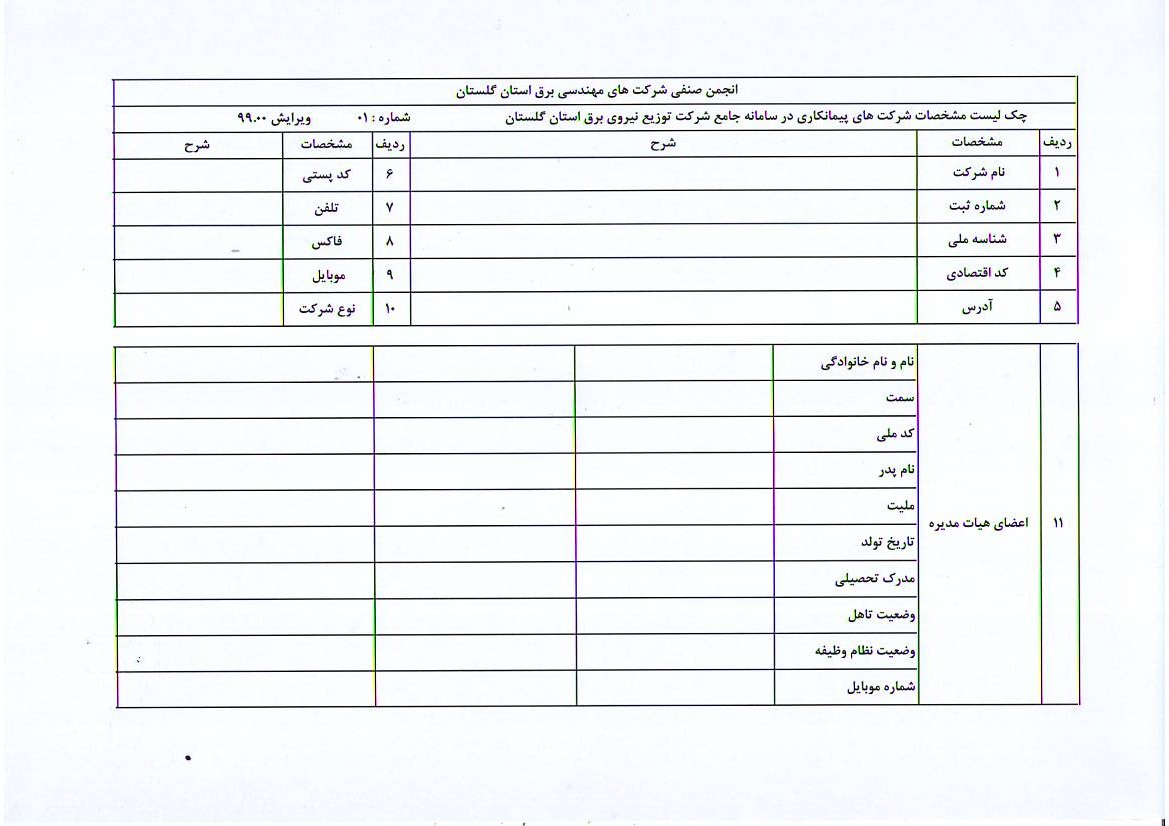 انجمن صنفی شرکت های مهندسی برق استان گلستان
چک لیست مشخصات شرکت های پیمانکاری در سامانه جامع شرکت توزیع نیروی برق استان گلستان شماره : ۰۱ ویرایش ۹۹.۰۰
ردیف مشخصات شرح ردیف مشخصات شرح
۱ نام شرکت ۶ کد پستی
۲ شماره ثبت ۷ تلفن
۳ شناسه ملی ۸ فاکس
۴ کد اقتصادی ۹ موبایل
۵ آدرس ۱۰ نوع شرکت
۱۱ اعضای هیات مدیره
نام و نام خانوادگی
سمت
کد ملی
نام پدر
ملیت
تاریخ تولد
مدرک تحصیلی
وضعیت تاهل
وضعیت نظام وظیفه
شماره موبایل